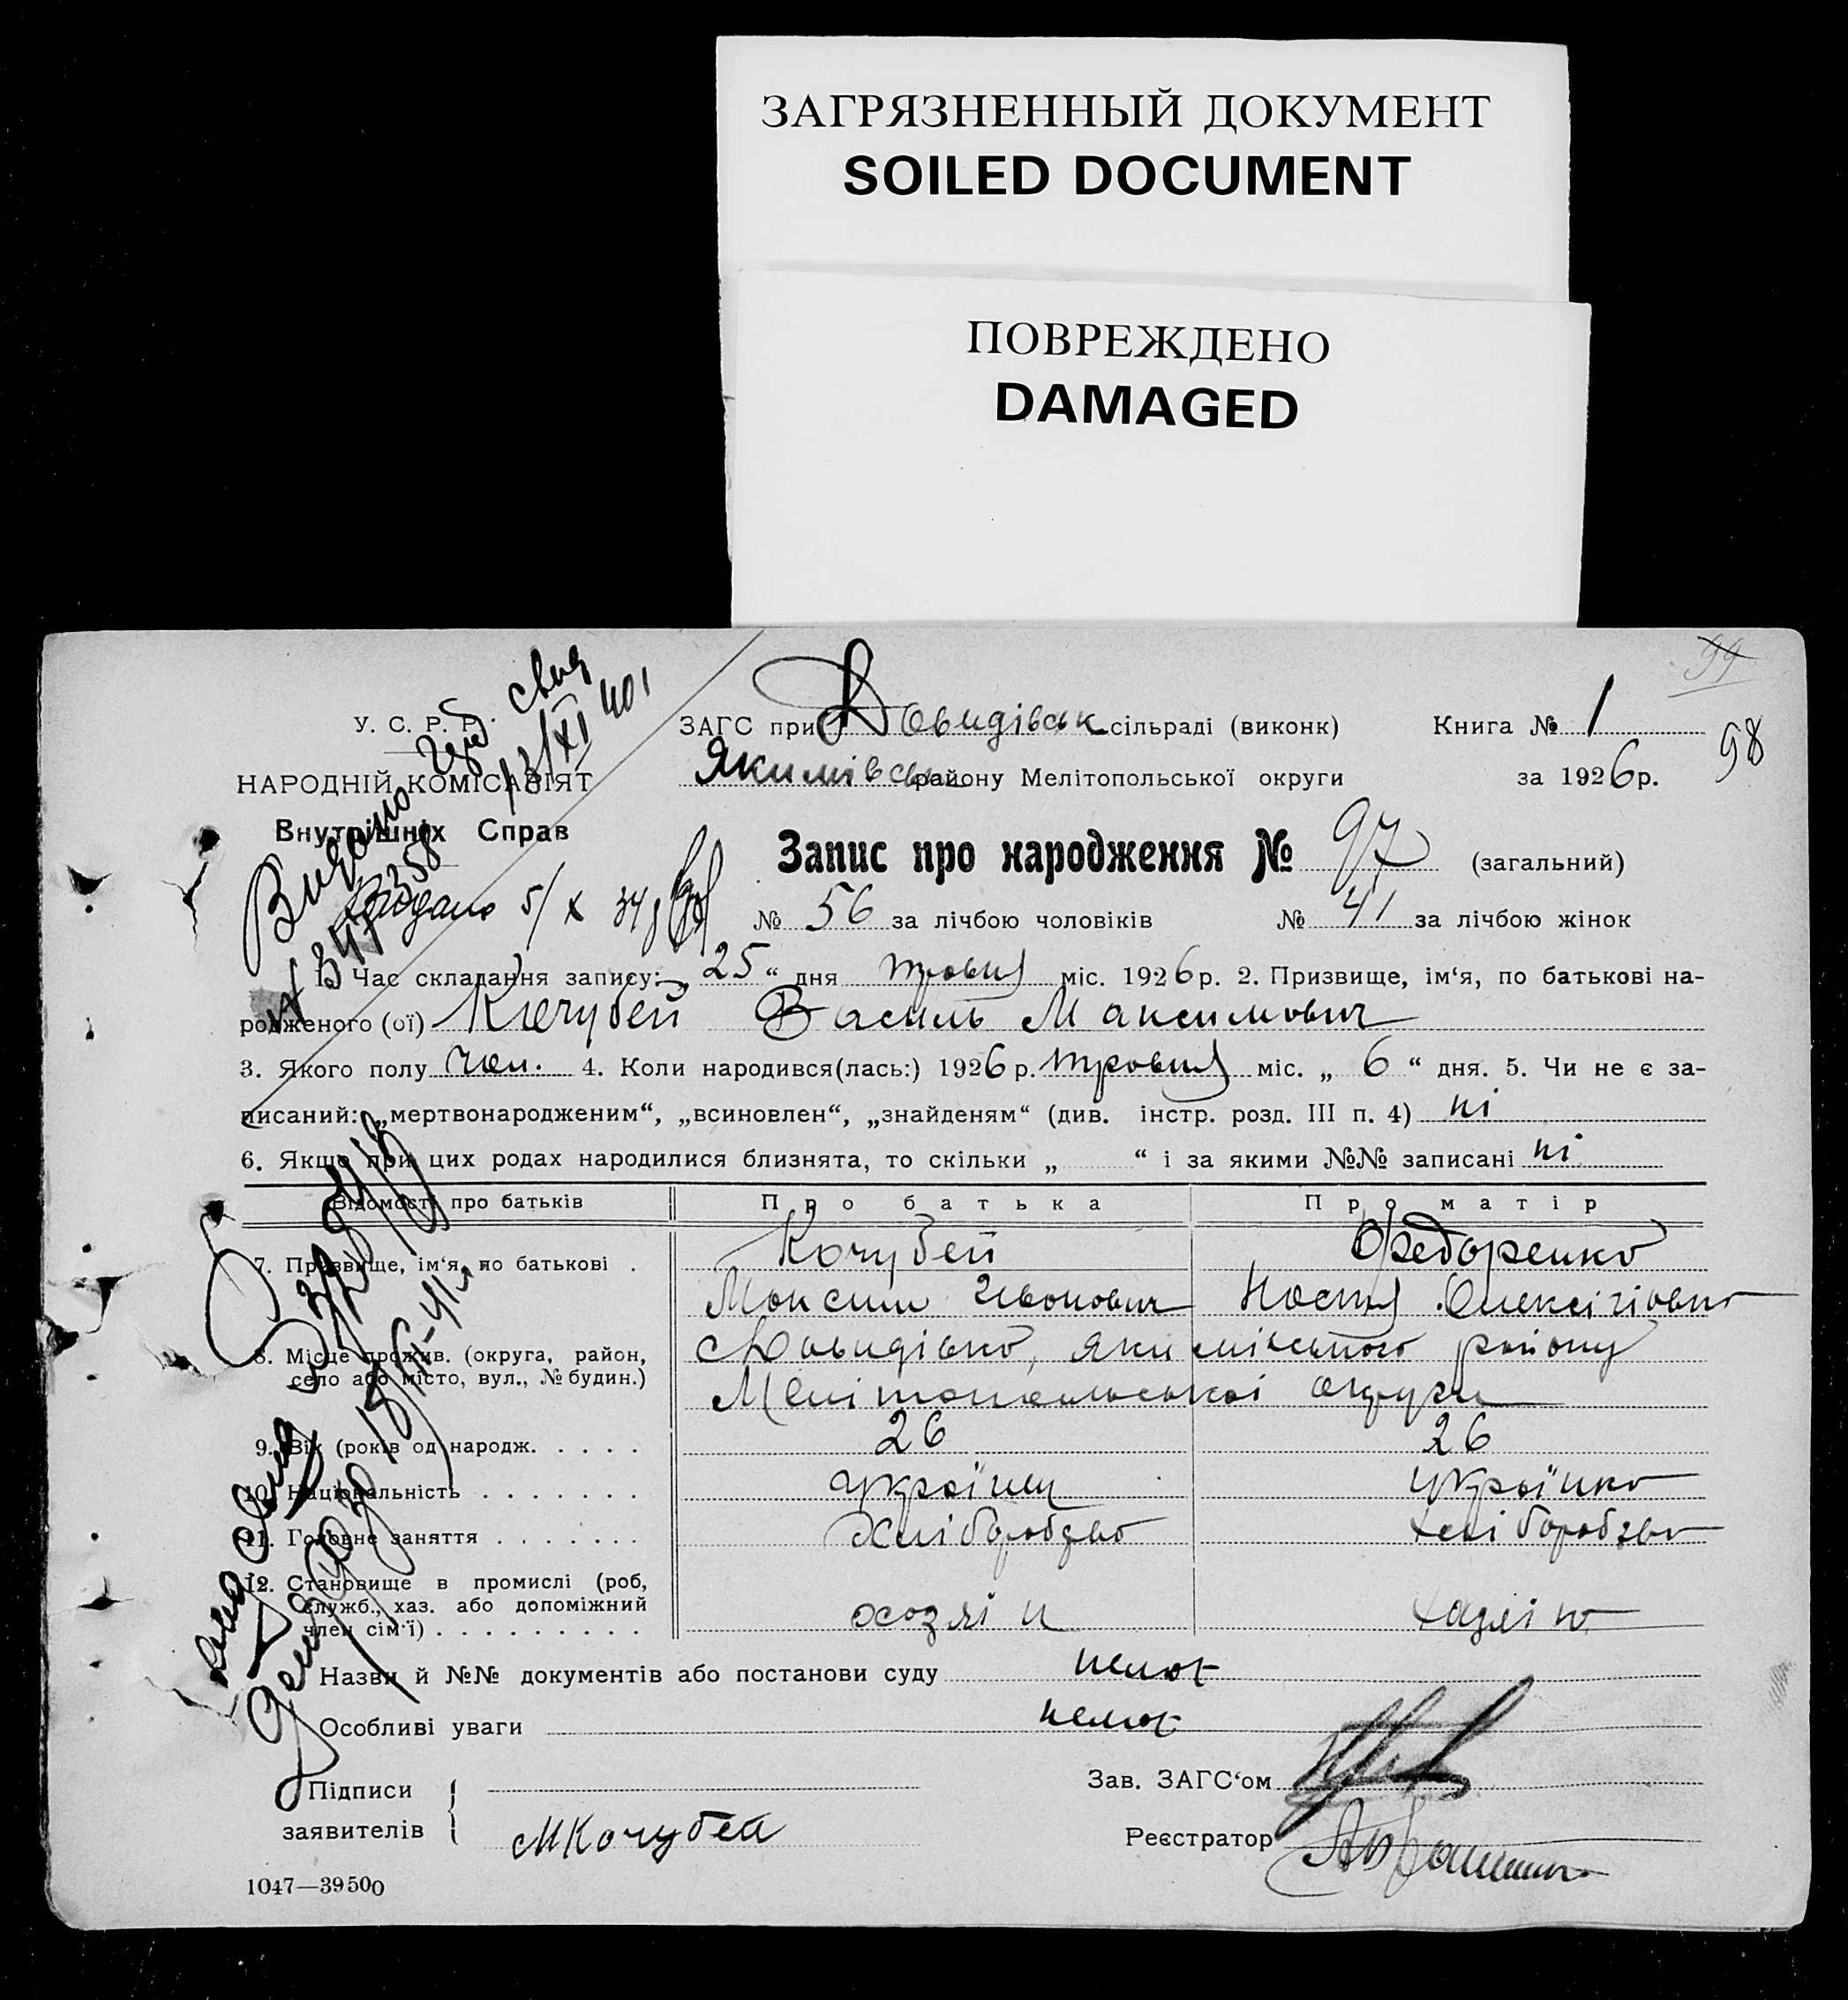 ЗАГРЯЗНЕННЫЙ ДОКУМЕНТ
SOILED DOCUMENT
ПОВРЕЖДЕНО
DAMAGED
99
98
У. С. Р. Р.
НАРОДНІЙ КОМІСАРІЯТ
Внутрішніх Справ
ЗАГС при Довидівск сільраді (виконк) Книга № 1
Якимівськ району Мелітопольської округи за 1926 р.
Запис про народження № 97 (загальний)
№ 56 за лічбою чоловіків № 41 за лічбою жінок
1. Час складання запису: „ 25 “ дня травня міс. 1926 р. 2. Призвище, ім‘я, по батькові на-
родженого (ої) Кючубей Василь Максимович
3. Якого полу чол. 4. Коли народився(лась:) 1926 р. травня міс. „ 6 “ дня. 5. Чи не є за-
писаний: „мертвонародженим“, „всиновлен“, „знайденям“ (див. інстр. розд. III п. 4) ні
6. Якщо при цих родах народилися близнята, то скільки „ “ і за якими №№ записані ні
Відомості про батьків Про батька Про матір
7. Призвище, ім‘я, по батькові . Кочубей Федоренко
Максим Іванович Настя Олексіївна
8. Місце прожив. (округа, район, село або місто, вул., № будин.) Давидівка, Якимівського району
Мелітопольської округи
9. Вік (років од народж. . . . . 26 26
10. Національність . . . . . . . українец українка
11. Головне заняття . . . . . . . Хліборобство хліборобство
12. Становище в промислі (роб,
служб., хаз. або допоміжний
член сім‘ї) . . . . . . . . .
Назви й №№ документів або постанови суду немає
Особливі уваги немає
Підписи
заявителів
МКочубей
Зав. ЗАГС‘ом
Реєстратор
1047—39500
Видано
свид
13/XI 40
Видано 5/X 34